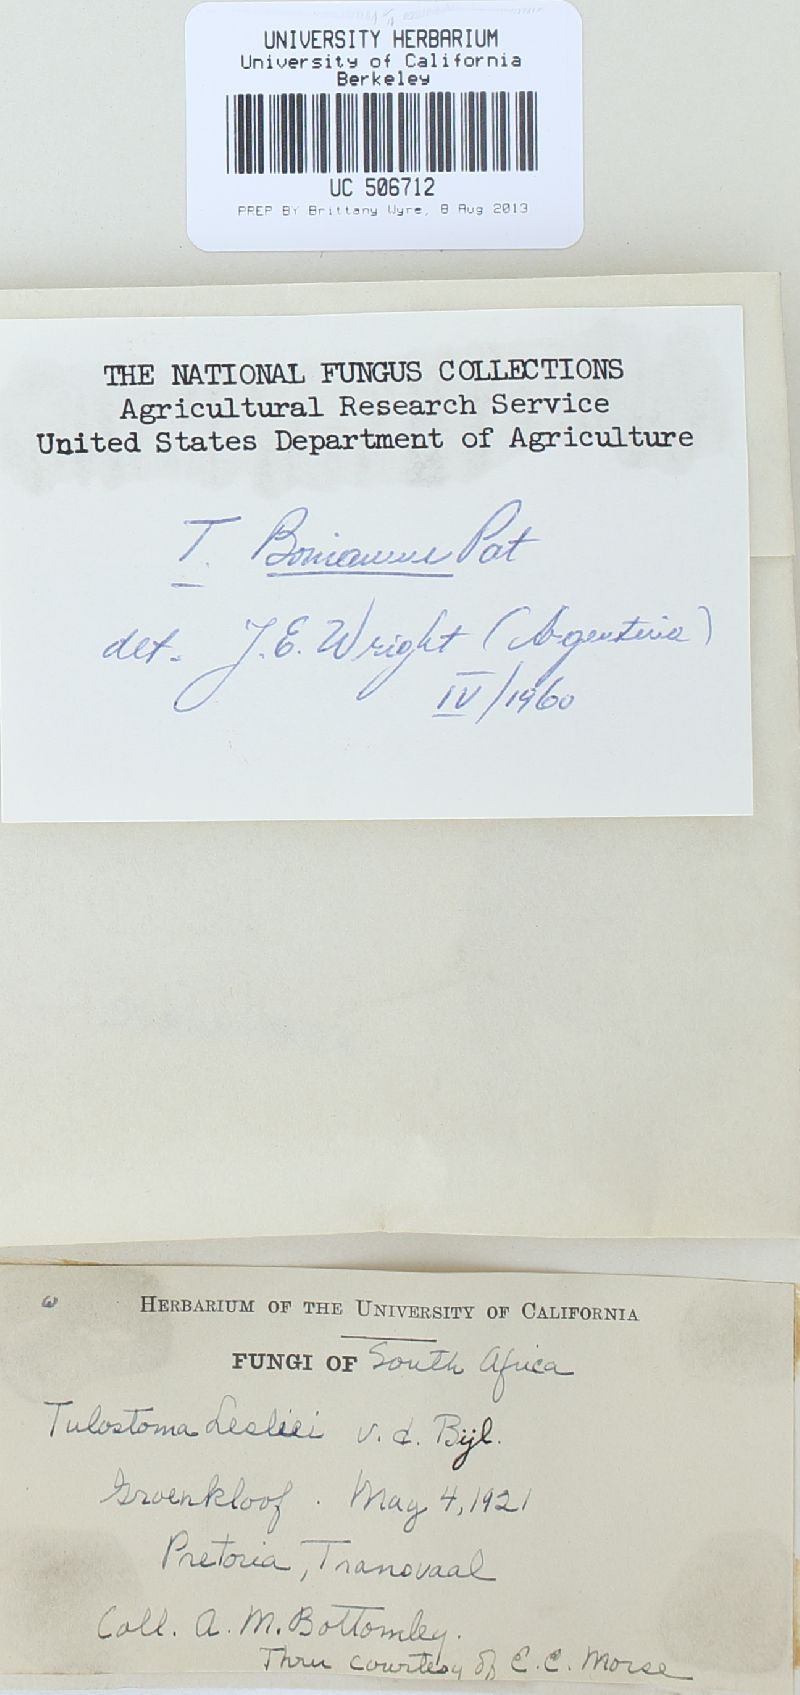 UNIVERSITY HERBARIUM
University of California
Berkeley
UC 506712
PREP BY Brittany Wyre, 8 Aug 2013
THE NATIONAL FUNGUS COLLECTIONS
Agricultural Research Service
United States Department of Agriculture
T. Bonianum Pat
det. J.E. Wright (Argentina)
IV/1960
HERBARIUM OF THE UNIVERSITY OF CALIFORNIA
FUNGI OF South Africa
Tulostoma Lesliei v. d. Bijl.
Groenkloof. May 4, 1921
Pretoria, Transvaal
Coll. A. M. Bottomley.
Thru courtesy of E. E. Morse